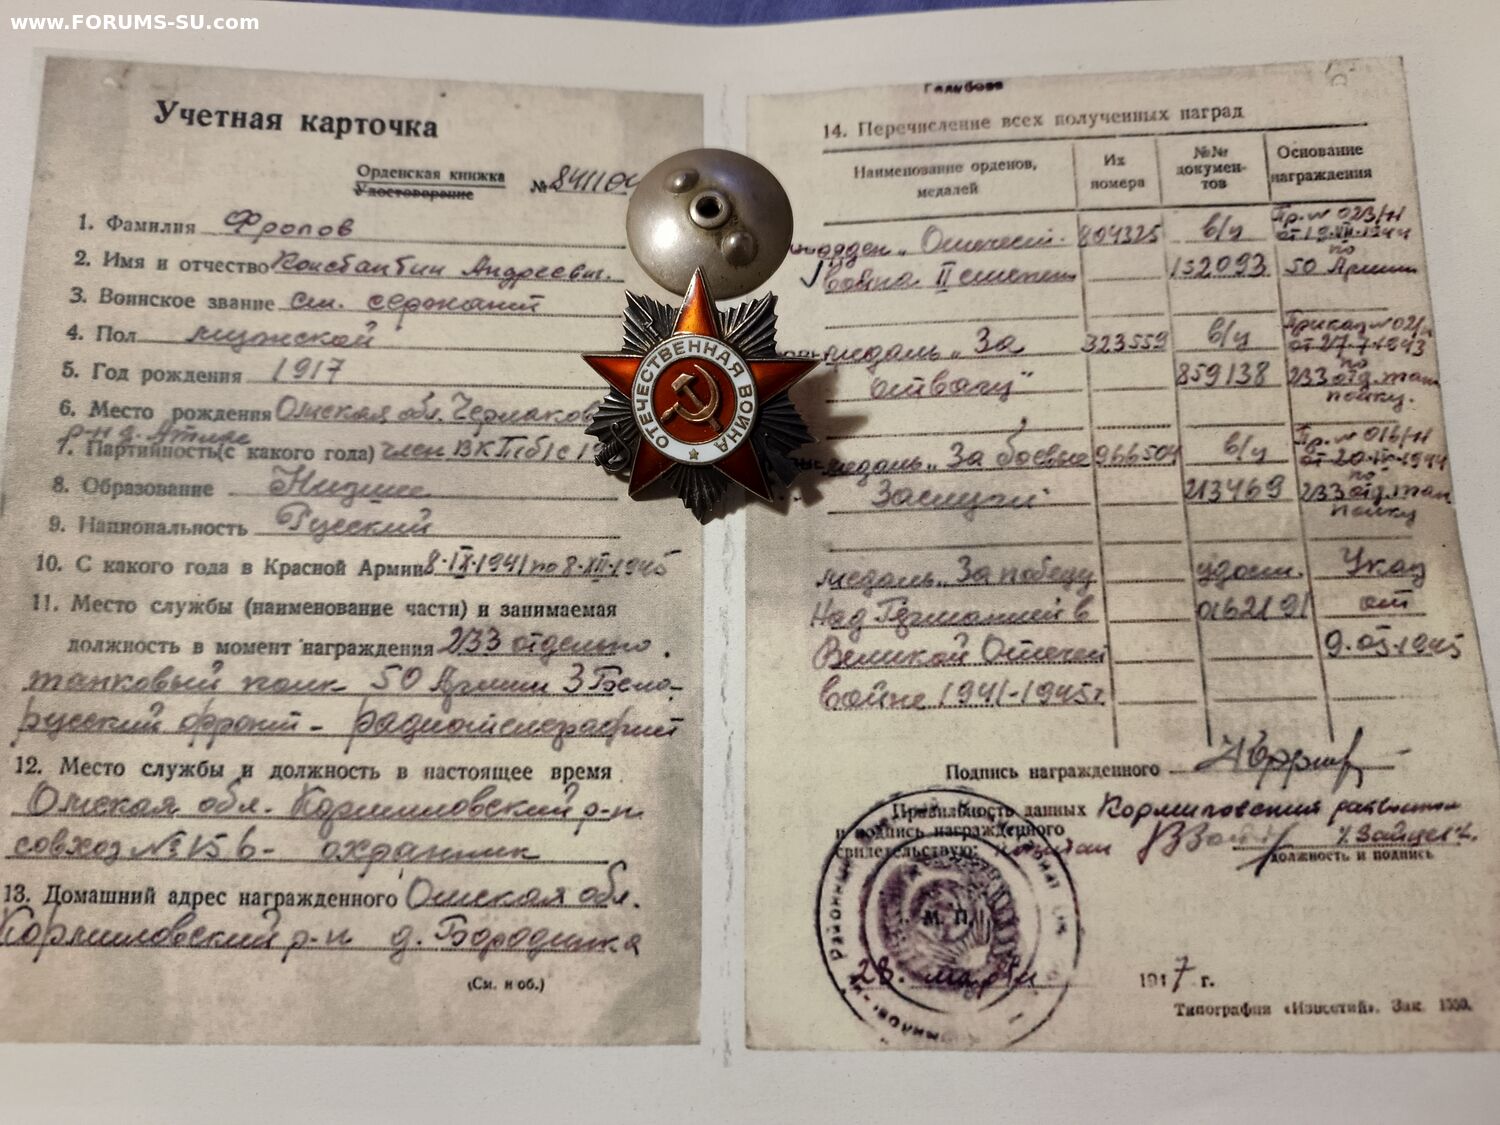 www.FORUMS-SU.com
Учетная карточка
Орденская книжка
Удостоверение
№ 841104
1. Фамилия Фролов
2. Имя и отчество Константин Андреевич.
3. Воинское звание см. сержант
4. Пол мужской
5. Год рождения 1917
6. Место рождения Омская обл. Черлаков
р-н д. Атире
7. Партийность (с какого года) член ВКП(б) с 19
8. Образование Низшее
9. Национальность Русский
10. С какого года в Красной Армии 8.IX.1941 по 8.XII.1945
11. Место службы (наименование части) и занимаемая
должность в момент награждения 233 отдельно.
танковый полк 50 Армии 3 Бело-
русский фронт - радиотелеграфист
12. Место службы и должность в настоящее время
Омская обл. Кормиловский р-н
совхоз № 156 - охранник
13. Домашний адрес награжденного Омская обл.
Кормиловский р-н д. Бородинка
(См. н об.)
ОТЕЧЕСТВЕННАЯ ВОЙНА
14. Перечисление всех полученных наград
Наименование орденов, медалей
Их номера
№№ документов
Основание награждения
орден „Отечест. 804325 в/у Пр. № 023/н
от 19.XII.1944
по
война II степени 152093 50 Армии
медаль „За 323559 в/у Приказ № 021/н
от 27.7.1943
по
отвагу" 859138 233 отд. тан
полку.
медаль „За боевые 966504 в/у Пр. № 016/н
от 20.IX.1944
по
Заслуги 213469 233 отд. тан
полку
медаль „За победу удост. Указ
Над Германией в 0162191 от
Великой Отечест 9.05.1945
Войне 1941-1945г.
Подпись награжденного
Правильность данных Кормиловский
и подпись награжденного
свидетельствую: капитан /Зайцев/.
должность и подпись
М. П.
28. марта 1947 г.
Типография «Известий». Зак. 1550.